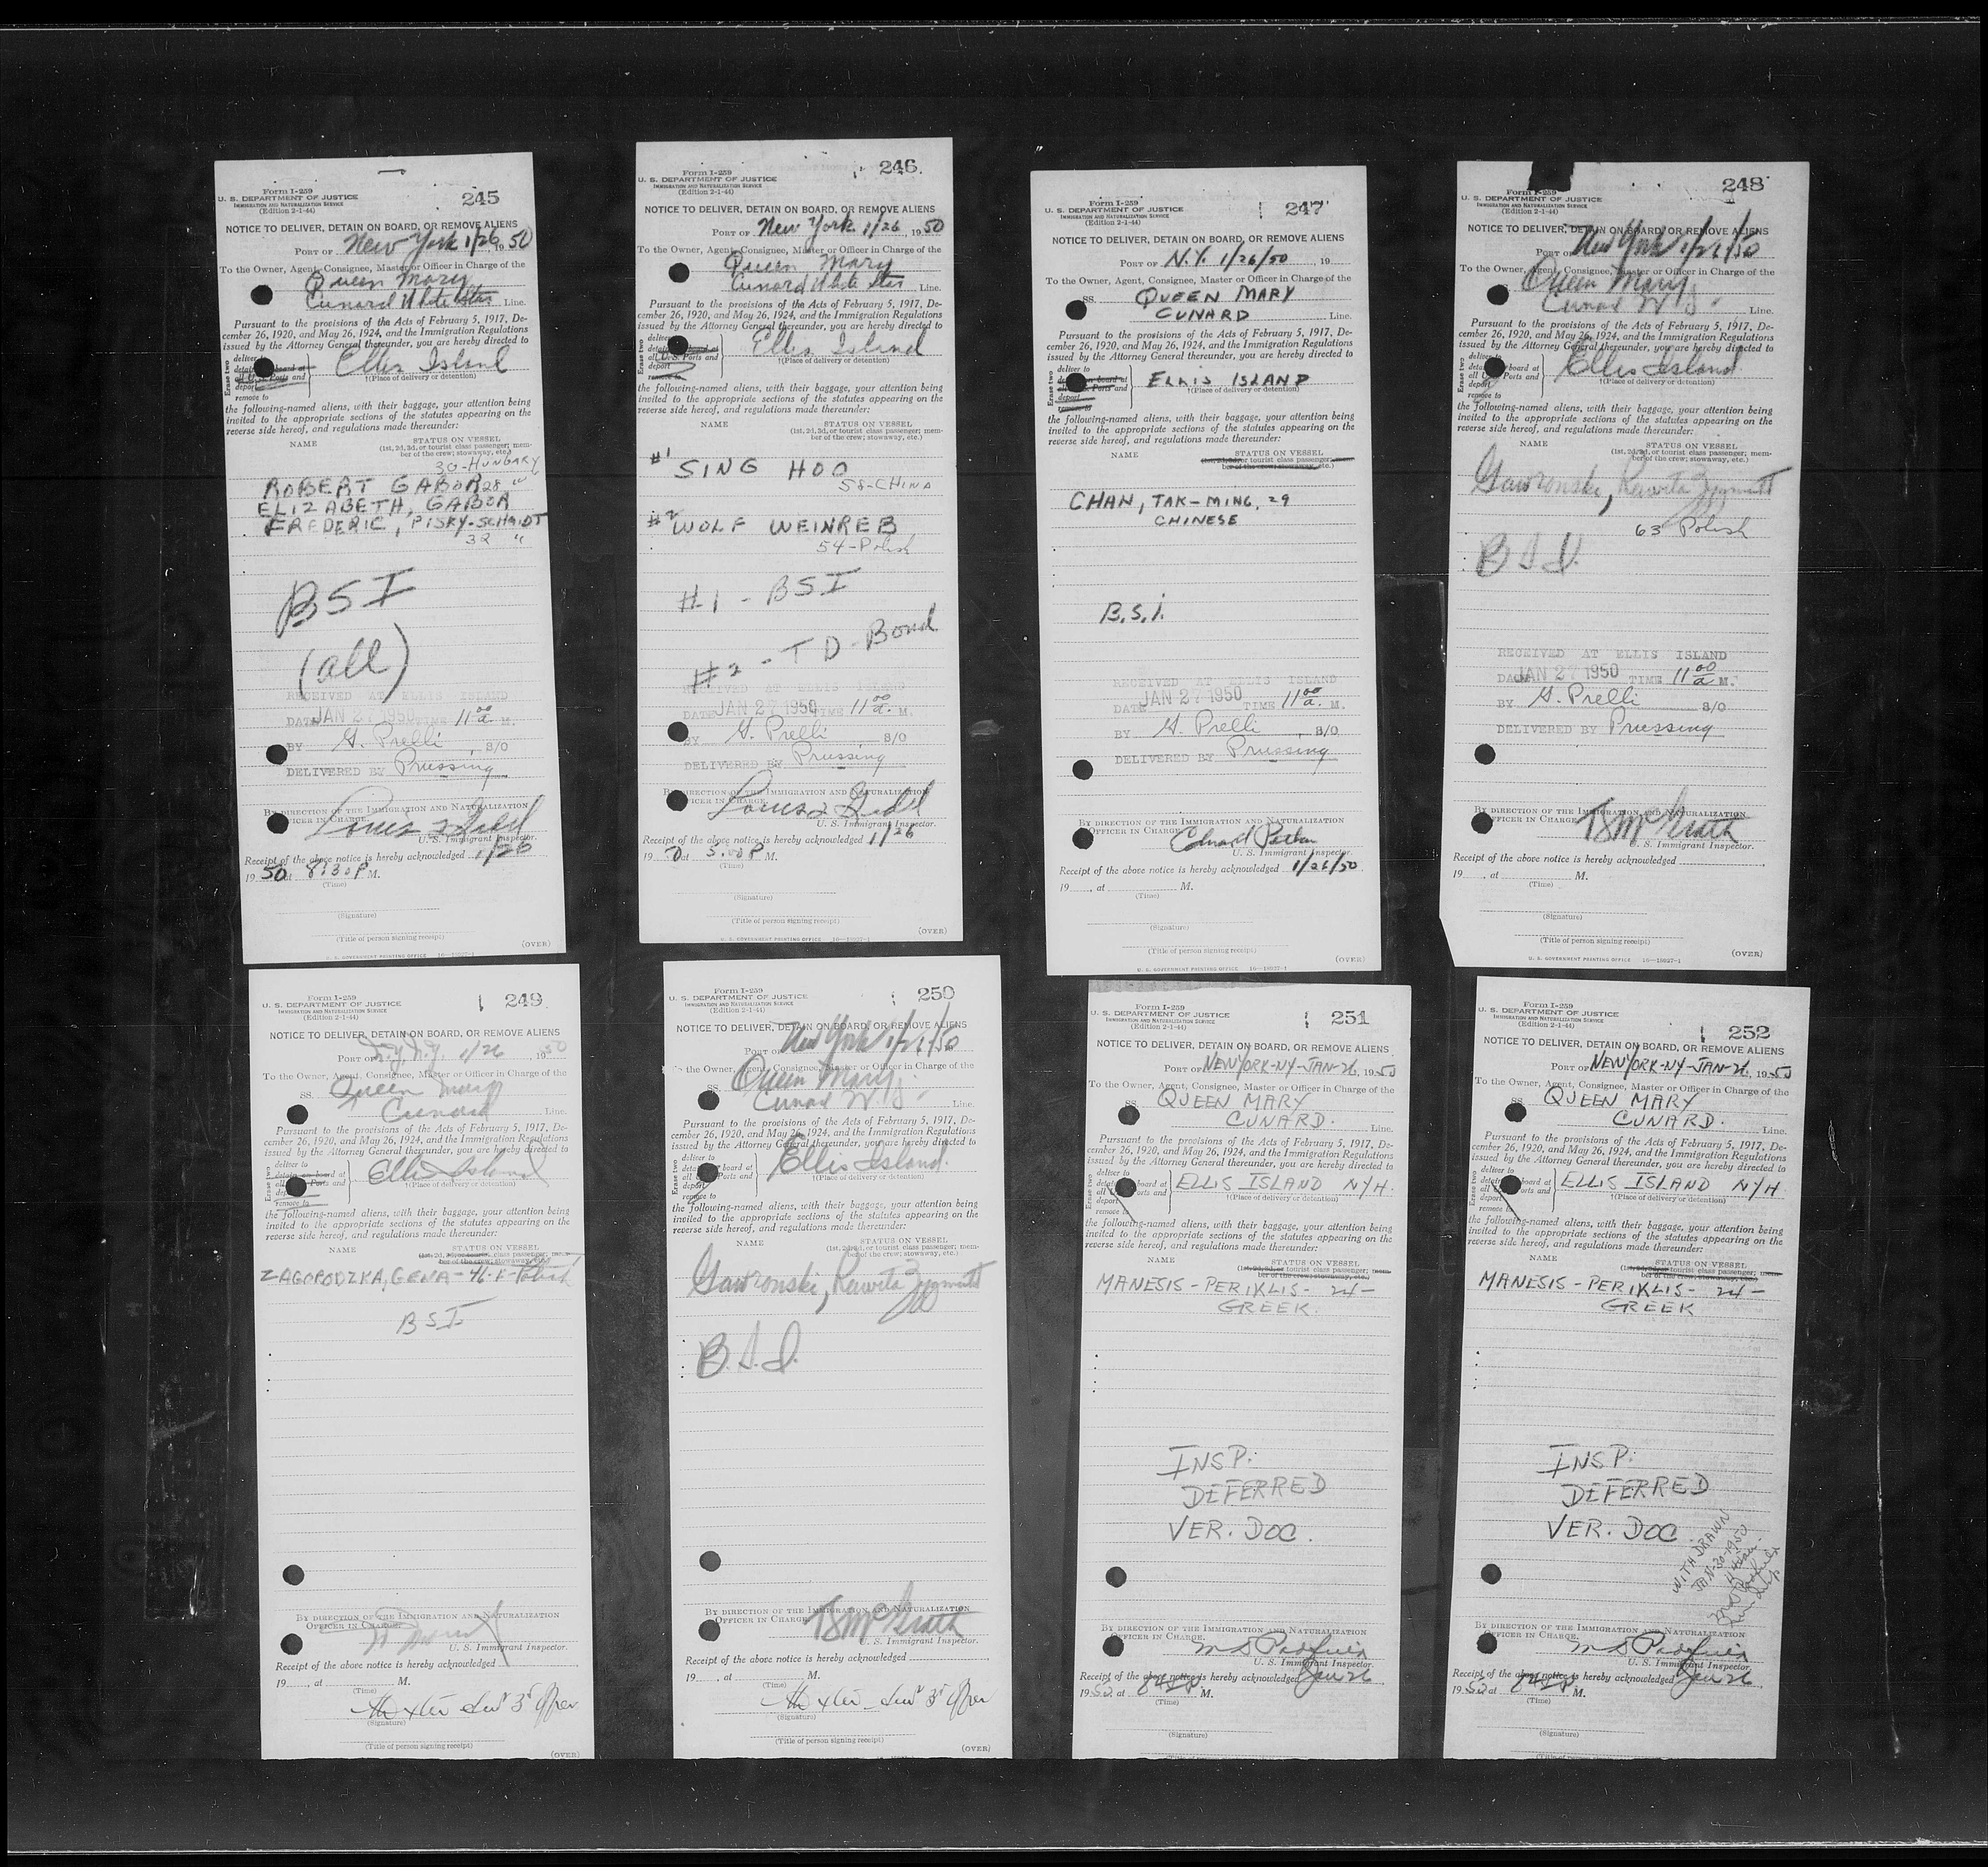 Form I-259
U. S. DEPARTMENT OF JUSTICE
IMMIGRATION AND NATURALIZATION SERVICE
(Edition 2-1-44)
245
NOTICE TO DELIVER, DETAIN ON BOARD, OR REMOVE ALIENS
PORT OF New York 1/26, 1950
To the Owner, Agent, Consignee, Master or Officer in Charge of the
Queen Mary
Cunard White Star Line.
Pursuant to the provisions of the Acts of February 5, 1917, De-
cember 26, 1920, and May 26, 1924, and the Immigration Regulations
issued by the Attorney General thereunder, you are hereby directed to
Erase two
deliver to
detain on board at
all U. S. Ports and
deport
remove to
Ellis Island
†(Place of delivery or detention)
the following-named aliens, with their baggage, your attention being
invited to the appropriate sections of the statutes appearing on the
reverse side hereof, and regulations made thereunder:
NAME STATUS ON VESSEL
(1st, 2d, 3d, or tourist class passenger; mem-
ber of the crew; stowaway, etc.)
30-HUNGARY
ROBERT GABOR 28 "
ELIZABETH, GABOR
FREDERIC, PISKY-SCHMIDT
32 "
BSI
(all)
RECEIVED AT ELLIS ISLAND
DATE JAN 27 1950 TIME 11 00 a. M.
BY G. Prelli S/O
DELIVERED BY Prussing
BY DIRECTION OF THE IMMIGRATION AND NATURALIZATION
OFFICER IN CHARGE.
U. S. Immigrant Inspector.
Receipt of the above notice is hereby acknowledged 1/26
1950 at 8:30 P M.
(Time)
(Signature)
(Title of person signing receipt)
U. S. GOVERNMENT PRINTING OFFICE 16—18927-1
(OVER)
Form I-259
U. S. DEPARTMENT OF JUSTICE
IMMIGRATION AND NATURALIZATION SERVICE
(Edition 2-1-44)
246
NOTICE TO DELIVER, DETAIN ON BOARD, OR REMOVE ALIENS
PORT OF New York 1/26, 1950
To the Owner, Agent, Consignee, Master or Officer in Charge of the
Queen Mary
Cunard White Star Line.
Pursuant to the provisions of the Acts of February 5, 1917, De-
cember 26, 1920, and May 26, 1924, and the Immigration Regulations
issued by the Attorney General thereunder, you are hereby directed to
Erase two
deliver
detain on board at
all U. S. Ports and
deport
remove to
Ellis Island
†(Place of delivery or detention)
the following-named aliens, with their baggage, your attention being
invited to the appropriate sections of the statutes appearing on the
reverse side hereof, and regulations made thereunder:
NAME STATUS ON VESSEL
(1st, 2d, 3d, or tourist class passenger; mem-
ber of the crew; stowaway, etc.)
#1 SING HOO
58-CHINA
#2 WOLF WEINREB
54-Polish
#1 - BSI
#2 - TD - Bond
RECEIVED AT ELLIS ISLAND
DATE JAN 27 1950 TIME 11 00 a. M.
BY G. Prelli S/O
DELIVERED BY Prussing
BY DIRECTION OF THE IMMIGRATION AND NATURALIZATION
OFFICER IN CHARGE.
U. S. Immigrant Inspector.
Receipt of the above notice is hereby acknowledged 1/26
1950 at 5:00 P M.
(Time)
(Signature)
(Title of person signing receipt)
U. S. GOVERNMENT PRINTING OFFICE 16—18927-1
(OVER)
Form I-259
U. S. DEPARTMENT OF JUSTICE
IMMIGRATION AND NATURALIZATION SERVICE
(Edition 2-1-44)
247
NOTICE TO DELIVER, DETAIN ON BOARD, OR REMOVE ALIENS
PORT OF N.Y. 1/26/50, 19
To the Owner, Agent, Consignee, Master or Officer in Charge of the
SS. QUEEN MARY
CUNARD Line.
Pursuant to the provisions of the Acts of February 5, 1917, De-
cember 26, 1920, and May 26, 1924, and the Immigration Regulations
issued by the Attorney General thereunder, you are hereby directed to
Erase two
deliver to
detain on board at
all U. S. Ports and
deport
remove to
ELLIS ISLAND
†(Place of delivery or detention)
the following-named aliens, with their baggage, your attention being
invited to the appropriate sections of the statutes appearing on the
reverse side hereof, and regulations made thereunder:
NAME STATUS ON VESSEL
(1st, 2d, 3d, or tourist class passenger; mem-
ber of the crew; stowaway, etc.)
CHAN, TAK-MING, 29
CHINESE
B.S.I.
RECEIVED AT ELLIS ISLAND
DATE JAN 27 1950 TIME 11 00 a. M.
BY G. Prelli S/O
DELIVERED BY Prussing
BY DIRECTION OF THE IMMIGRATION AND NATURALIZATION
OFFICER IN CHARGE.
U. S. Immigrant Inspector.
Receipt of the above notice is hereby acknowledged 1/26/50
19 , at M.
(Time)
(Signature)
(Title of person signing receipt)
U. S. GOVERNMENT PRINTING OFFICE 16—18927-1
(OVER)
Form I-259
U. S. DEPARTMENT OF JUSTICE
IMMIGRATION AND NATURALIZATION SERVICE
(Edition 2-1-44)
248
NOTICE TO DELIVER, DETAIN ON BOARD, OR REMOVE ALIENS
PORT OF New York 1/26/50
To the Owner, Agent, Consignee, Master or Officer in Charge of the
Queen Mary
Cunard W. S. Line.
Pursuant to the provisions of the Acts of February 5, 1917, De-
cember 26, 1920, and May 26, 1924, and the Immigration Regulations
issued by the Attorney General thereunder, you are hereby directed to
Erase two
deliver to
board at
all U. S. Ports and
deport
remove to
Ellis Island
†(Place of delivery or detention)
the following-named aliens, with their baggage, your attention being
invited to the appropriate sections of the statutes appearing on the
reverse side hereof, and regulations made thereunder:
NAME STATUS ON VESSEL
(1st, 2d, 3d, or tourist class passenger; mem-
ber of the crew; stowaway, etc.)
Gawronski, Rawita Zygmunt
63 Polish
B.S.I.
RECEIVED AT ELLIS ISLAND
DATE JAN 27 1950 TIME 11 00 a M.
BY G. Prelli S/O
DELIVERED BY Prussing
BY DIRECTION OF THE IMMIGRATION AND NATURALIZATION
OFFICER IN CHARGE
TS McGrath
U. S. Immigrant Inspector.
Receipt of the above notice is hereby acknowledged
19 , at M.
(Time)
(Signature)
(Title of person signing receipt)
U. S. GOVERNMENT PRINTING OFFICE 16—18927-1
(OVER)
Form I-259
U. S. DEPARTMENT OF JUSTICE
IMMIGRATION AND NATURALIZATION SERVICE
(Edition 2-1-44)
249
NOTICE TO DELIVER, DETAIN ON BOARD, OR REMOVE ALIENS
PORT OF N.Y. N.Y. 1/26, 1950
To the Owner, Agent, Consignee, Master or Officer in Charge of the
SS. Queen Mary
Cunard Line.
Pursuant to the provisions of the Acts of February 5, 1917, De-
cember 26, 1920, and May 26, 1924, and the Immigration Regulations
issued by the Attorney General thereunder, you are hereby directed to
Erase two
deliver to
detain on board at
all U. S. Ports and
deport
remove to
Ellis Island
†(Place of delivery or detention)
the following-named aliens, with their baggage, your attention being
invited to the appropriate sections of the statutes appearing on the
reverse side hereof, and regulations made thereunder:
NAME STATUS ON VESSEL
(1st, 2d, 3d, or tourist class passenger; mem-
ber of the crew; stowaway, etc.)
ZAGORODZKA, GENA - 46-F-Polish
BSI
BY DIRECTION OF THE IMMIGRATION AND NATURALIZATION
OFFICER IN CHARGE.
U. S. Immigrant Inspector.
Receipt of the above notice is hereby acknowledged
19 , at M.
(Time)
(Signature)
(Title of person signing receipt)
(OVER)
Form I-259
U. S. DEPARTMENT OF JUSTICE
IMMIGRATION AND NATURALIZATION SERVICE
(Edition 2-1-44)
250
NOTICE TO DELIVER, DETAIN ON BOARD, OR REMOVE ALIENS
PORT OF New York 1/26/50
To the Owner, Agent, Consignee, Master or Officer in Charge of the
SS. Queen Mary
Cunard W. S. Line.
Pursuant to the provisions of the Acts of February 5, 1917, De-
cember 26, 1920, and May 26, 1924, and the Immigration Regulations
issued by the Attorney General thereunder, you are hereby directed to
Erase two
deliver to
board at
all U. S. Ports and
deport
remove to
Ellis Island.
†(Place of delivery or detention)
the following-named aliens, with their baggage, your attention being
invited to the appropriate sections of the statutes appearing on the
reverse side hereof, and regulations made thereunder:
NAME STATUS ON VESSEL
(1st, 2d, 3d, or tourist class passenger; mem-
ber of the crew; stowaway, etc.)
Gawronski, Rawita Zygmunt
B.S.I.
BY DIRECTION OF THE IMMIGRATION AND NATURALIZATION
OFFICER IN CHARGE.
TS McGrath
U. S. Immigrant Inspector.
Receipt of the above notice is hereby acknowledged
19 , at M.
(Time)
(Signature)
(Title of person signing receipt)
(OVER)
Form I-259
U. S. DEPARTMENT OF JUSTICE
IMMIGRATION AND NATURALIZATION SERVICE
(Edition 2-1-44)
251
NOTICE TO DELIVER, DETAIN ON BOARD, OR REMOVE ALIENS
PORT OF NEW YORK-NY-JAN-26, 1950
To the Owner, Agent, Consignee, Master or Officer in Charge of the
SS. QUEEN MARY
CUNARD. Line.
Pursuant to the provisions of the Acts of February 5, 1917, De-
cember 26, 1920, and May 26, 1924, and the Immigration Regulations
issued by the Attorney General thereunder, you are hereby directed to
Erase two
deliver to
detain on board at
all U. S. Ports and
deport
remove to
ELLIS ISLAND NYH
†(Place of delivery or detention)
the following-named aliens, with their baggage, your attention being
invited to the appropriate sections of the statutes appearing on the
reverse side hereof, and regulations made thereunder:
NAME STATUS ON VESSEL
(1st, 2d, 3d, or tourist class passenger; mem-
ber of the crew; stowaway, etc.)
MANESIS - PERIKLIS - 24 -
GREEK.
INSP.
DEFERRED
VER. DOC.
BY DIRECTION OF THE IMMIGRATION AND NATURALIZATION
OFFICER IN CHARGE.
U. S. Immigrant Inspector.
Receipt of the above notice is hereby acknowledged Jan 26
1950 at M.
(Time)
(Signature)
Form I-259
U. S. DEPARTMENT OF JUSTICE
IMMIGRATION AND NATURALIZATION SERVICE
(Edition 2-1-44)
252
NOTICE TO DELIVER, DETAIN ON BOARD, OR REMOVE ALIENS
PORT OF NEW YORK-NY-JAN-26, 1950
To the Owner, Agent, Consignee, Master or Officer in Charge of the
SS. QUEEN MARY
CUNARD. Line.
Pursuant to the provisions of the Acts of February 5, 1917, De-
cember 26, 1920, and May 26, 1924, and the Immigration Regulations
issued by the Attorney General thereunder, you are hereby directed to
Erase two
deliver to
detain on board at
all U. S. Ports and
deport
remove to
ELLIS ISLAND NYH.
†(Place of delivery or detention)
the following-named aliens, with their baggage, your attention being
invited to the appropriate sections of the statutes appearing on the
reverse side hereof, and regulations made thereunder:
NAME STATUS ON VESSEL
(1st, 2d, 3d, or tourist class passenger; mem-
ber of the crew; stowaway, etc.)
MANESIS - PERIKLIS - 24 -
GREEK
INSP.
DEFERRED
VER. DOC.
WITHDRAWN
JAN-30-1950
BY DIRECTION OF THE IMMIGRATION AND NATURALIZATION
OFFICER IN CHARGE.
U. S. Immigrant Inspector
Receipt of the above notice is hereby acknowledged Jan 26
1950 at M.
(Time)
(Signature)